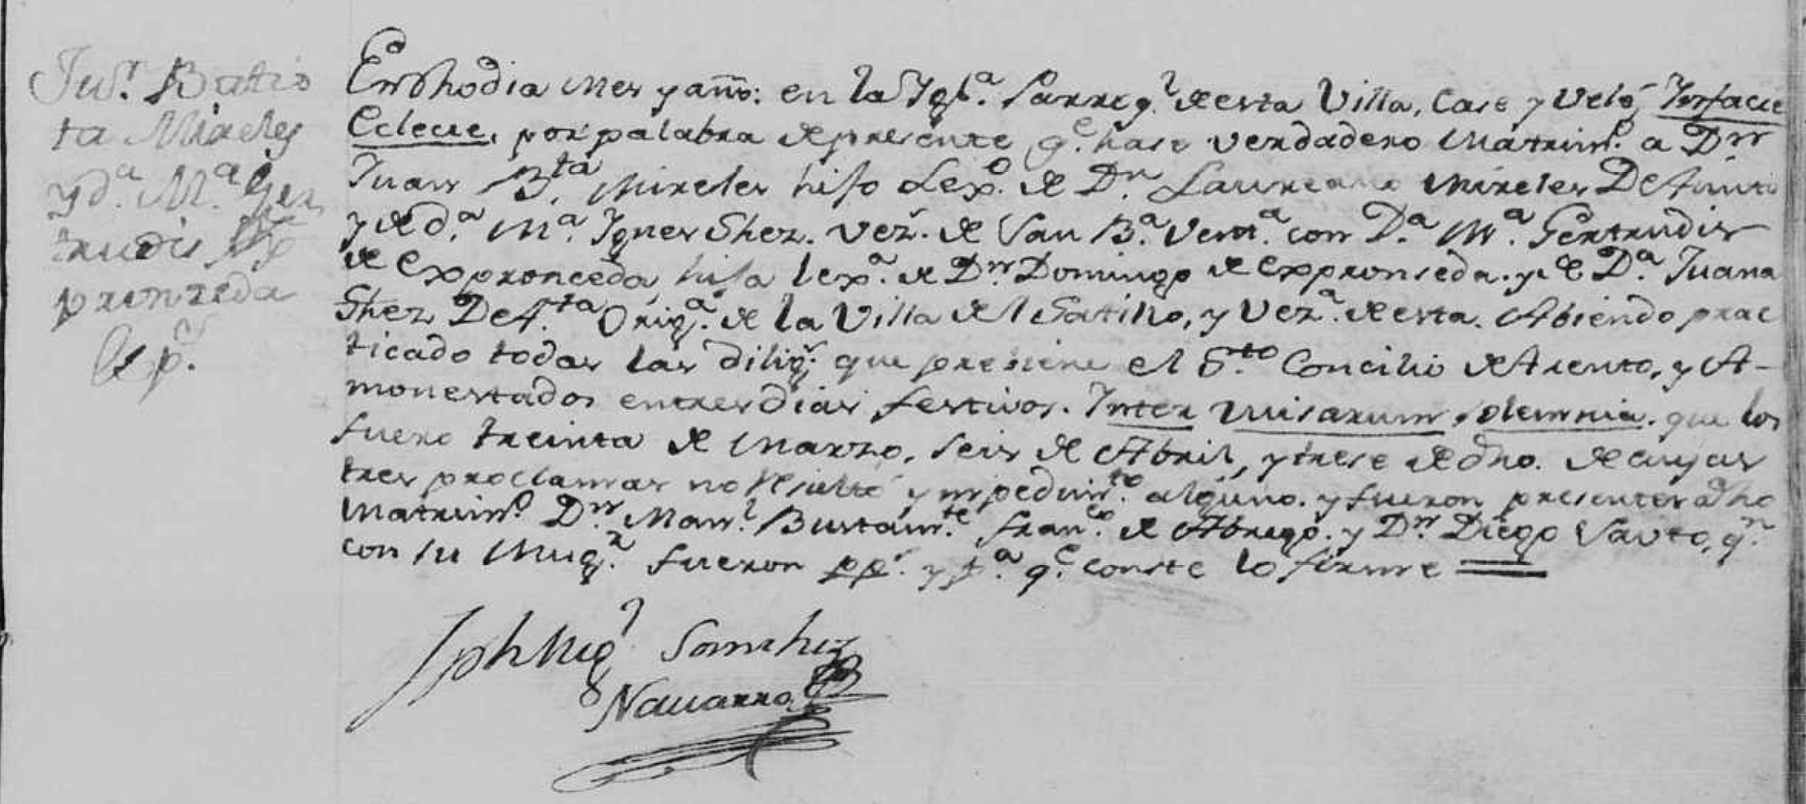 Ju.ⁿ Batis
ta Mireles
y d.ª M.ª Ger
trudis Ex
pronzeda
Esp.ˢ
En dho dia mes y año: en la Ygl.ª Parroq.l de esta Villa, Case y Velé, Ynfacie
Eclecie, por palabra de presente q.e hase verdadero Matrim.o a Dn
Juan B.ta Mireles hijo Lex.o de D.n Laureano Mireles Defunto
y de d.ª M.ª Ygnes Shez. vez.s de San B.ª Vent.ª con D.ª M.ª Gertrudis
de Expronceda, hija lex.ª de D.n Domingo de Expronseda. y de D.ª Juana
Shez Def.ta Orig.ª de la Villa de el Satillo, y Vez.ª de esta. Abiendo prac
ticado todas las dilig.s que previene el S.to Concilio de Trento, y A-
monestados en tres dias festivos. Ynter misarum solemnia. que los
fuero treinta de Marzo, seis de Abril, y trese de dho. de cuyas
tres proclamas no Resultó ympedim.to alguno. y fueron presentes a dho
Matrim.o D.n Man.l Bustam.te Fran.co de Abrego. y D.n Diego Santo, q.n
con su Mug.r fueron pp.s y p.ª q.e conste lo firme
Jph Mig.l Sanchez
Navarro